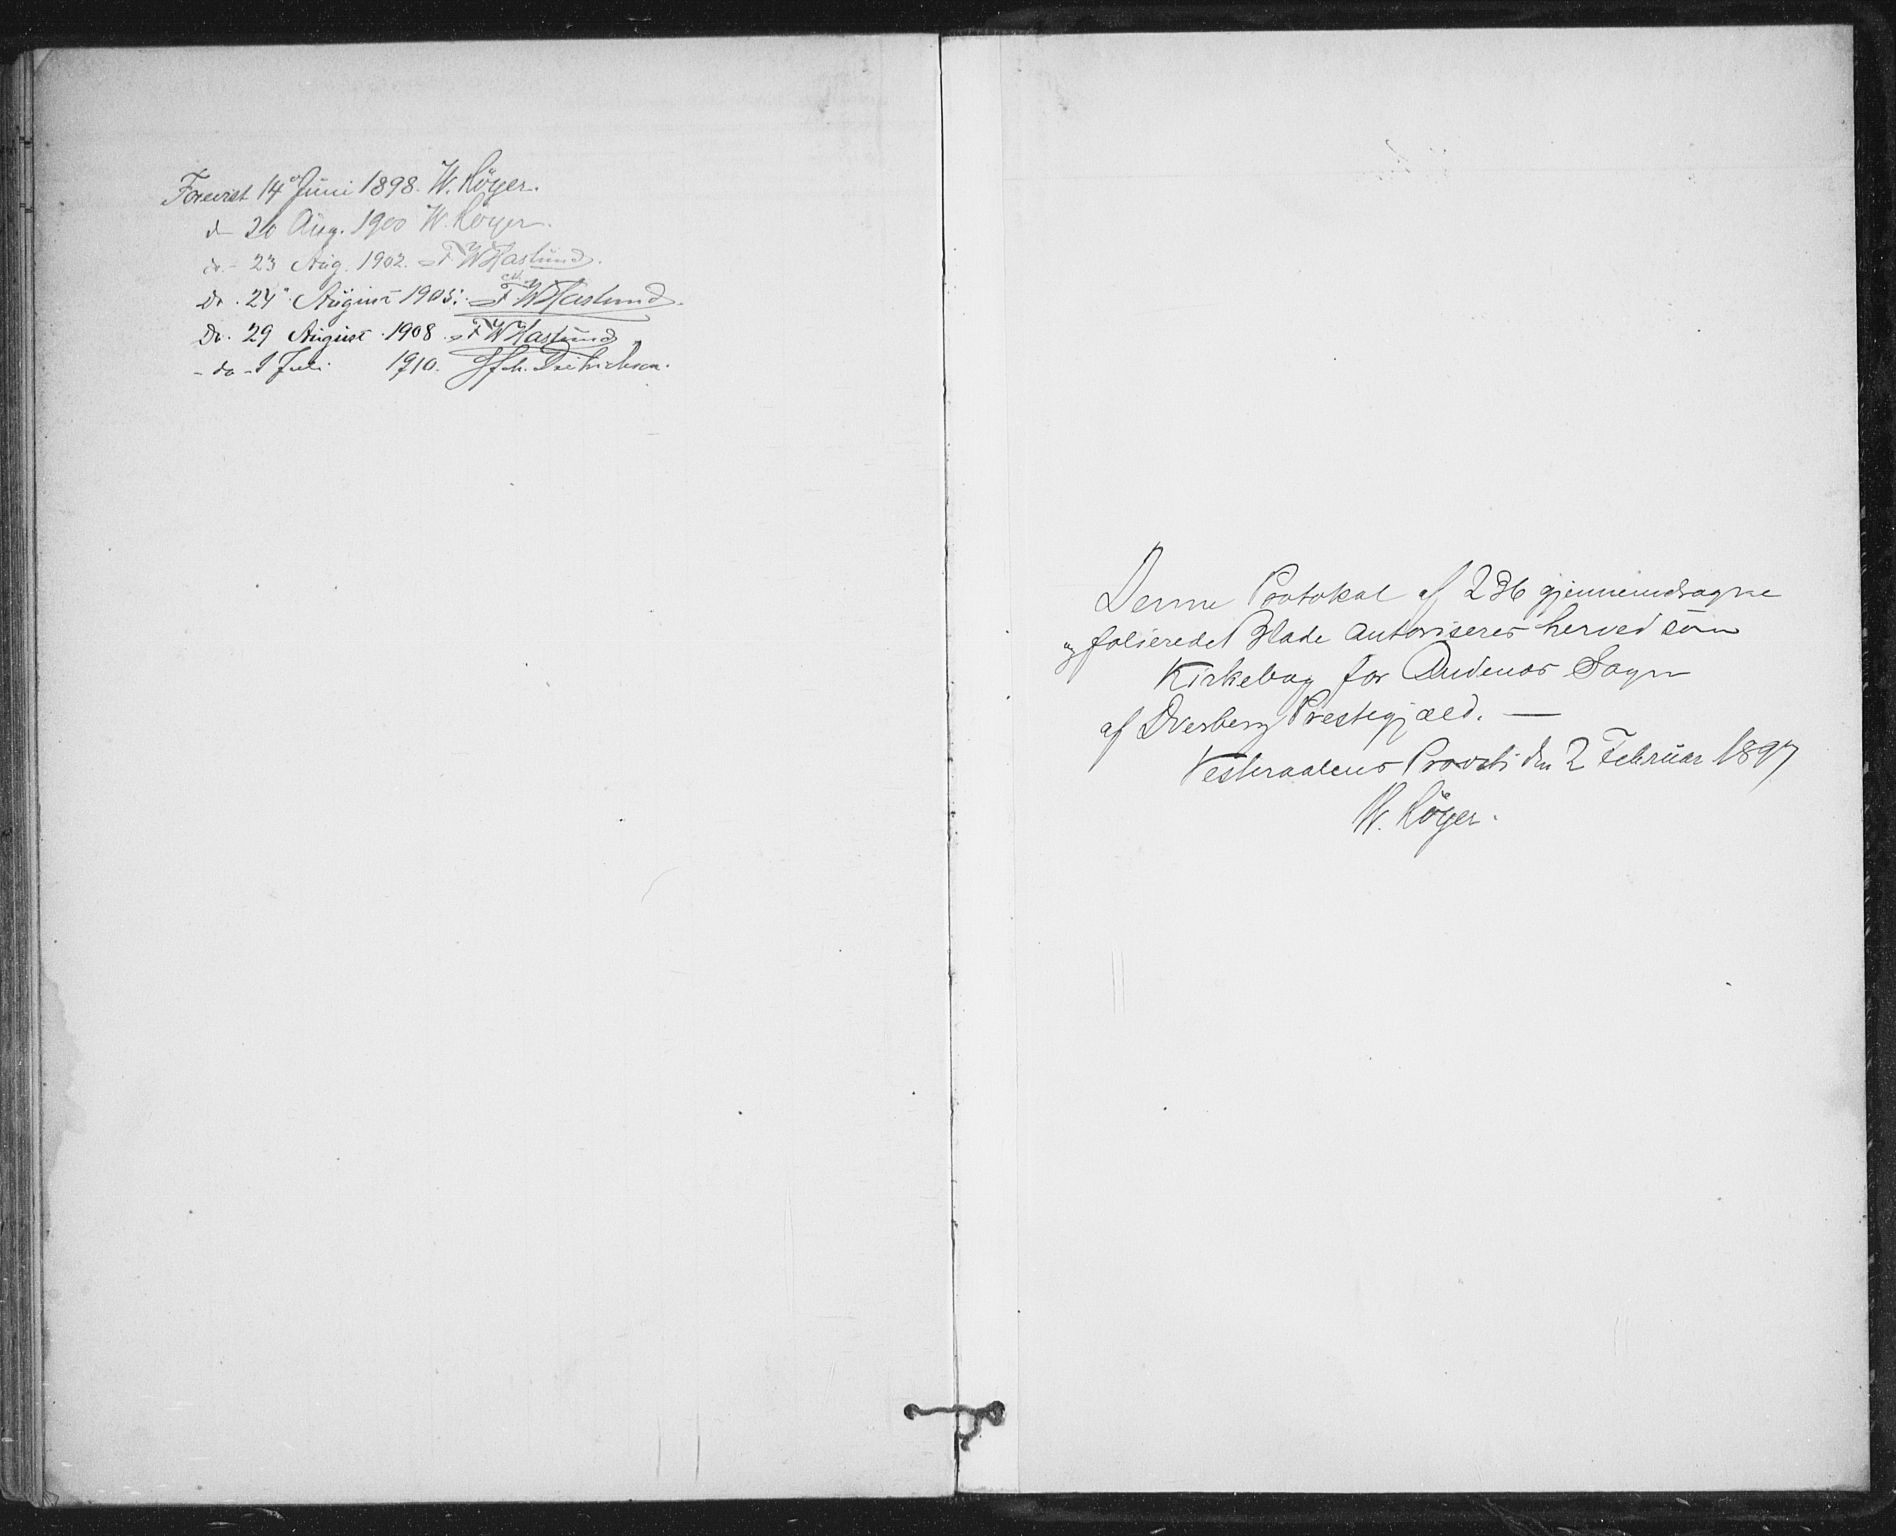 Forevist 14de Juni 1898. W. Röyer.
do 20 Aug. 1900 W. Röyer.
do. - 23 Aug. 1902. F W Haslund.
Do. 24' August 1905. F W Haslund.
Do. 29 August 1908. F W Haslund
- do - 1 Juli 1910. Dietrichson.
Denne Protokol af 236 gjennemdragne
og folierede Blade autoriseres herved som
Kirkebog for Andenæs Sogn
af Dverberg Prestegjæld. —
Vesteraalens Provsti den 2 Februar 1897
W. Röyer.